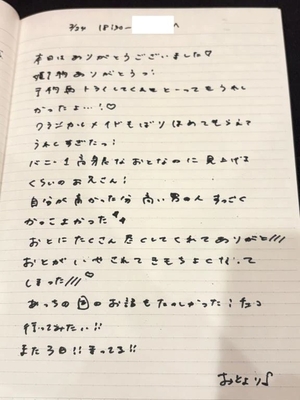 7/24 18:30〜
本日はありがとうございました♡
贈り物ありがとうっ:
予約為トライしてくれてとーってもうれし
かったよ…!♡
クラシカルメイドもばりほめてもらえて
うれしすぎたっ:
バニー1高身長なおとなのに見上げる
くらいのお兄さん:
自分が高かった分高い男の人すっごく
かっこよかった
おとにたくさん尽くしてくれてありがと///
おとがいやされてきもちよくなって
しまった///♡
あっちの国のお話もたのしかった:
行ってみたい!!
また3日!!まってる!!
おとより♪